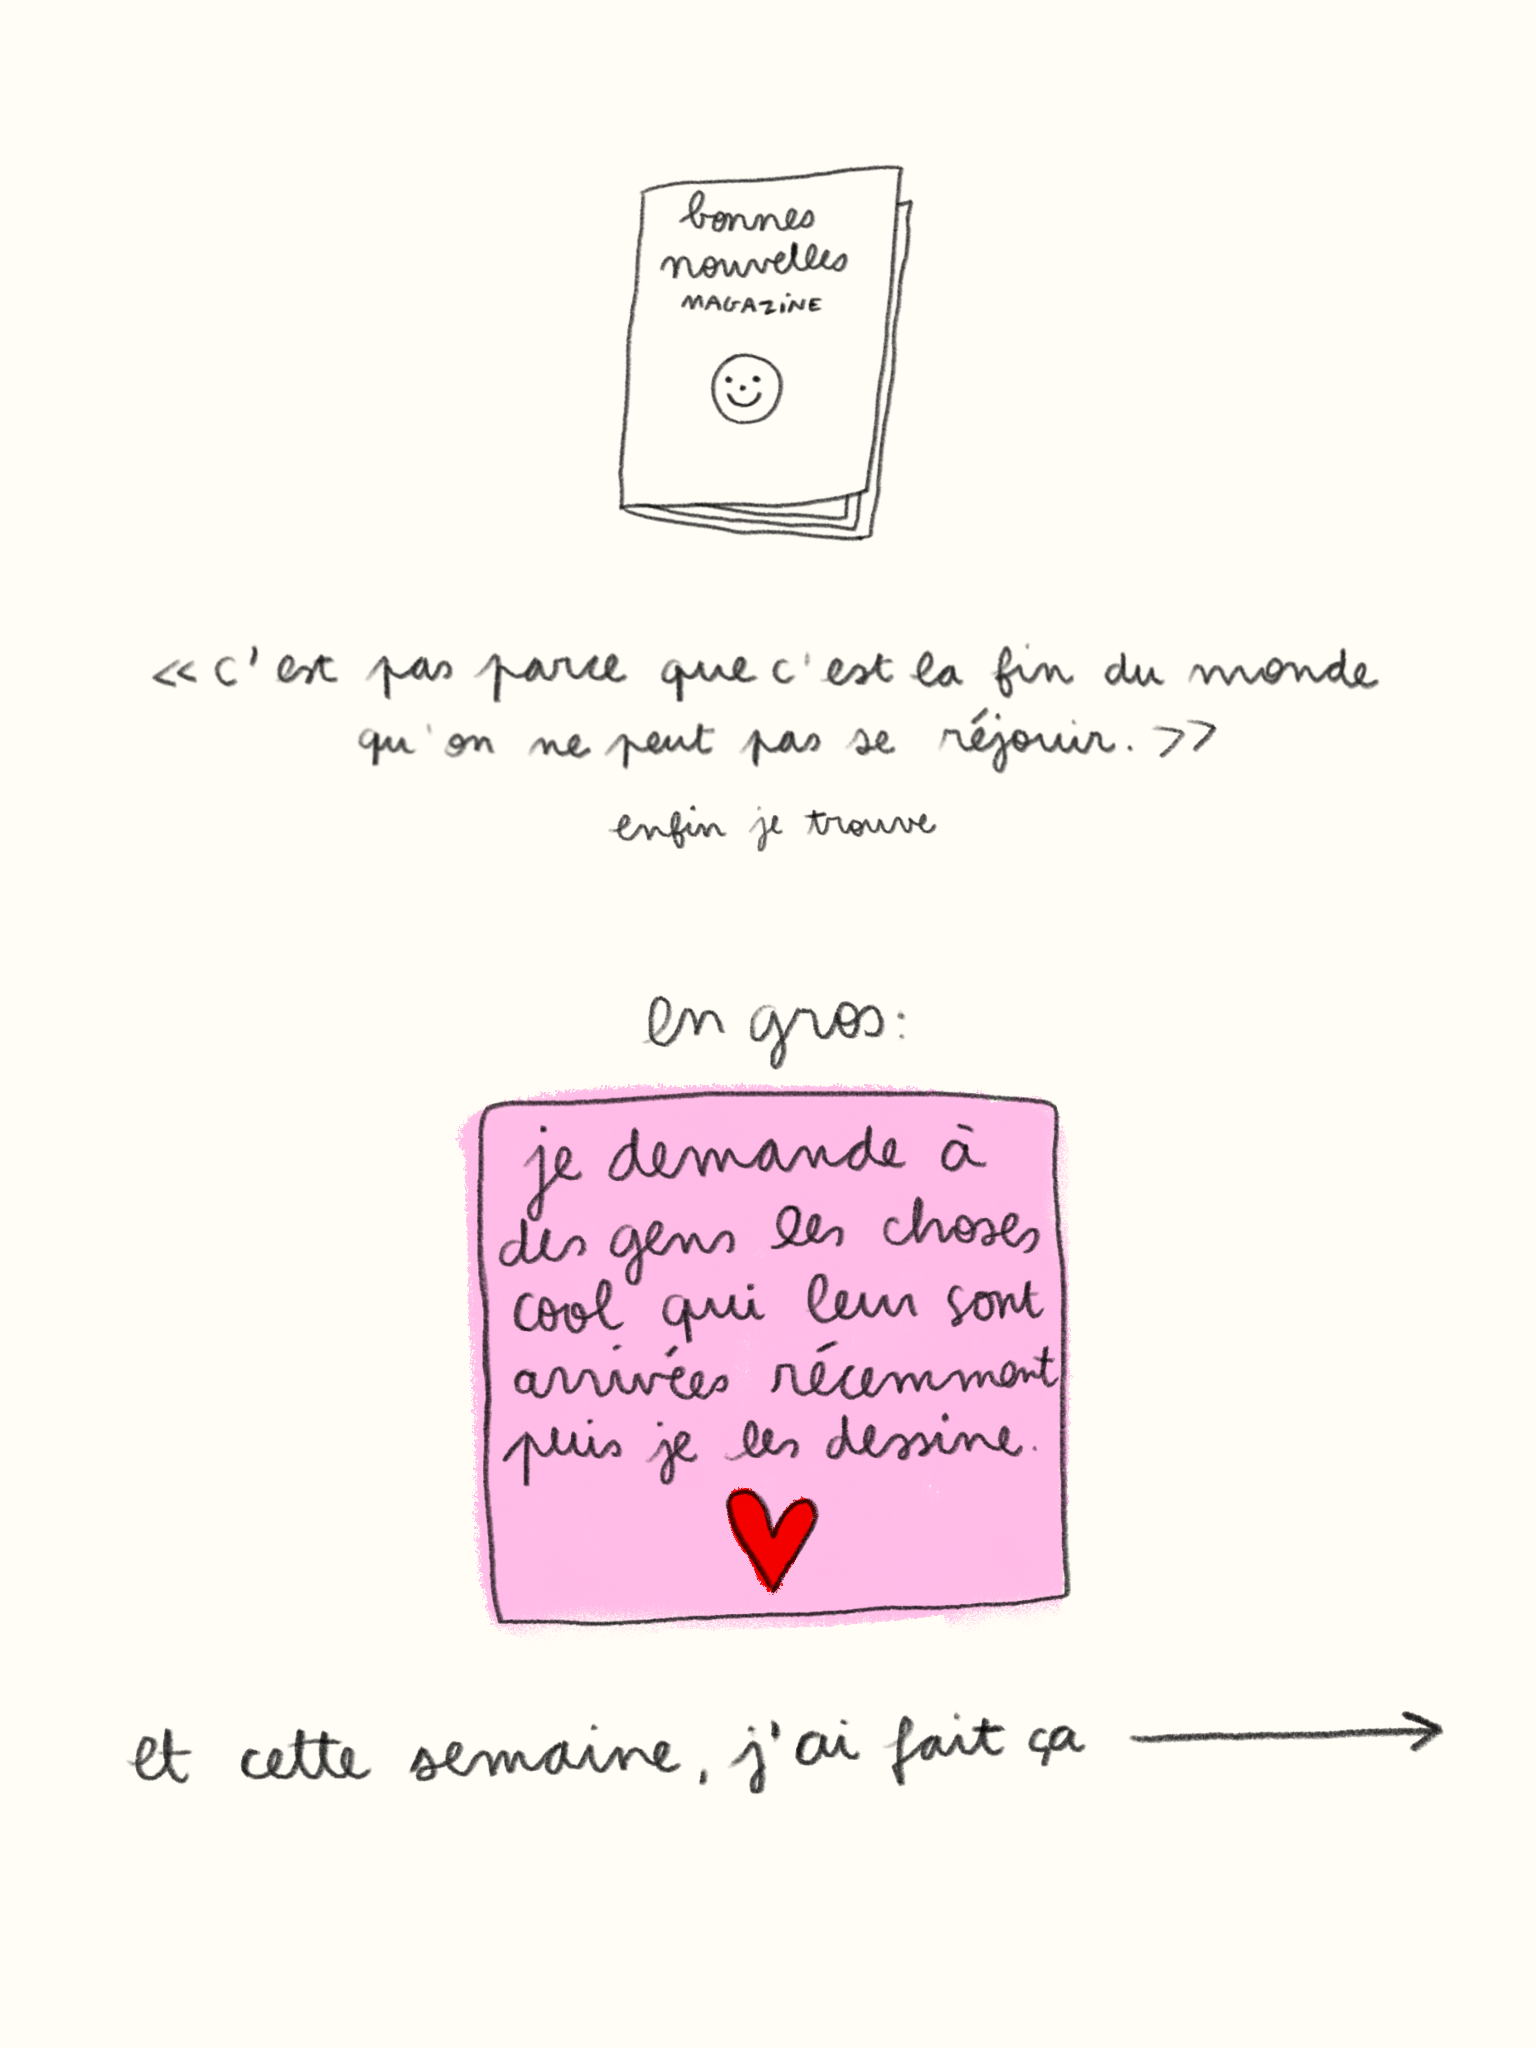 bonnes
nouvelles
MAGAZINE
«c'est pas parce que c'est la fin du monde
qu'on ne peut pas se réjouir.»
enfin je trouve
en gros:
je demande à
des gens les choses
cool qui leur sont
arrivées récemment
puis je les dessine.
et cette semaine, j'ai fait ça